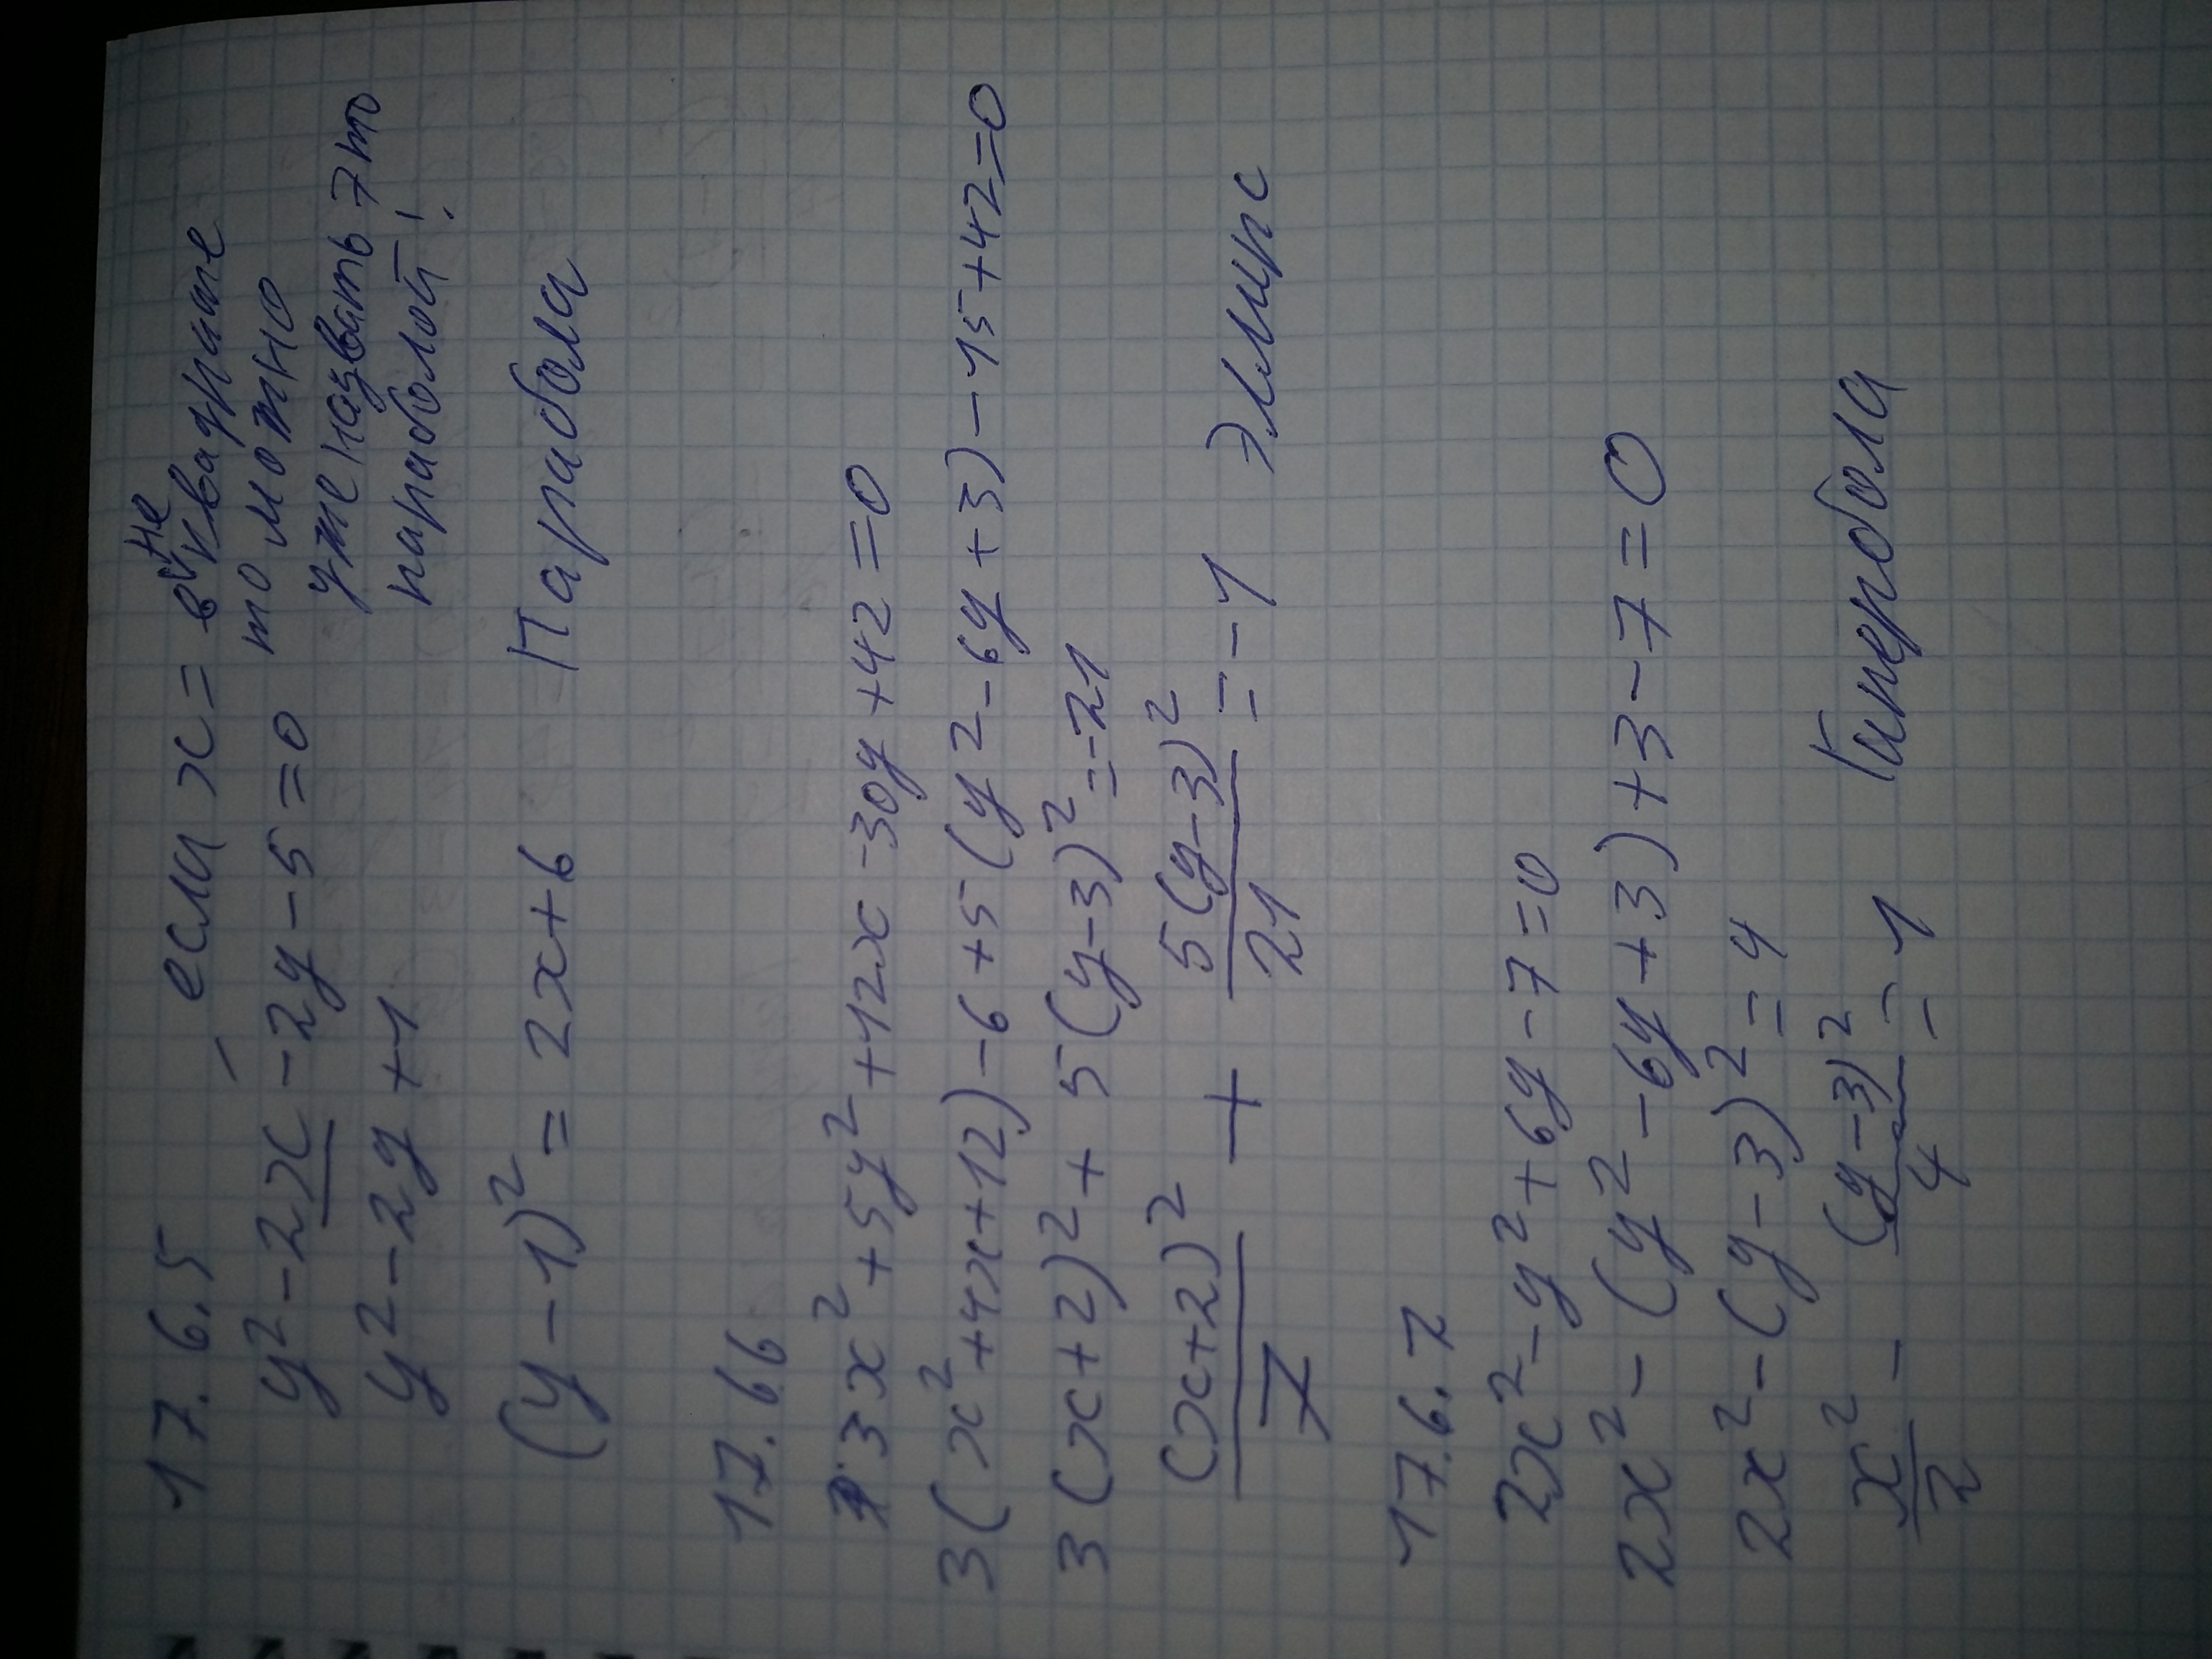 17.6.5
если x = в не квадрате
то можно
уже назвать это
параболой!
y² - 2x - 2y - 5 = 0
y² - 2y + 1
(y - 1)² = 2x + 6 Парабола
17.66
3x² + 5y² + 12x - 30y + 42 = 0
3(x² + 4x + 12) - 6 + 5(y² - 6y + 3) - 15 + 42 = 0
3(x + 2)² + 5(y - 3)² = -21
(x + 2)²/7 + 5(y - 3)²/21 = -1 Эллипс
17.6.7
2x² - y² + 6y - 7 = 0
2x² - (y² - 6y + 3) + 3 - 7 = 0
2x² - (y - 3)² = 4
x²/2 - (y - 3)²/4 = 1 Гипербола